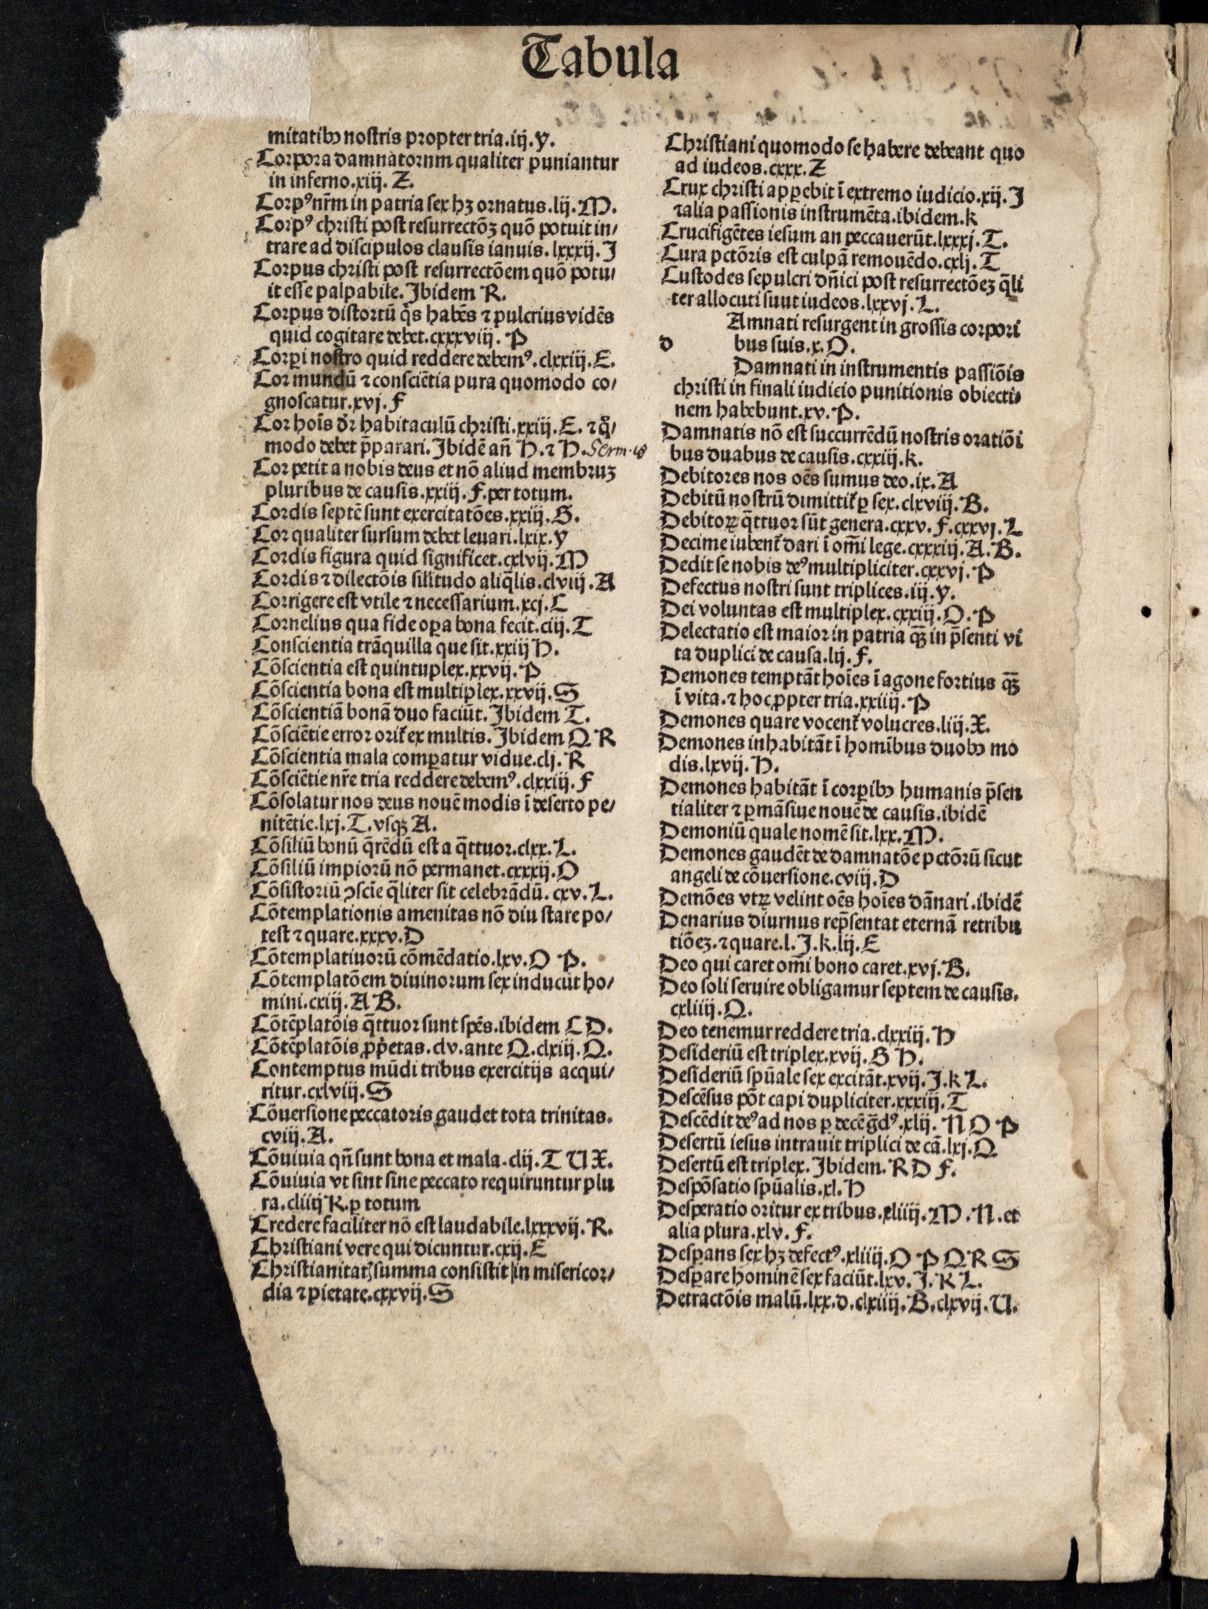 Tabula
mitatibꝰ nostris propter tria.iij.y.
Corpora damnatornm qualiter puniantur
in inferno.xiij. Z.
Corpꝰ nr̃m in patria sex hꝫ ornatus.lij.M.
Corpꝰ christi post resurrectõꝫ quõ potuit in/
trare ad discipulos clausis ianuis.lxxxij.J
Corpus christi post resurrectõem quõ potu/
it esse palpabile. Ibidem R.
Corpus distortũ q̃s habẽs ⁊ pulcrius vidẽs
quid cogitare debet.cxxxviij.P
Corpi nostro quid reddere debemꝰ.clxxiij.E.
Cor mundũ ⁊ consciẽtia pura quomodo co/
gnoscatur.xvj.F
Cor hoĩs dr̃ habitaculũ christi.xxiij.E. ⁊ q̃/
modo debet p̃parari. Ibidẽ añ H.⁊ H. Serm.
Cor petit a nobis deus et nõ aliud membruꝫ
pluribus de causis.xxiij.F.per totum.
Cordis septẽ sunt exercitatões.xxiij.G.
Cor qualiter sursum debet leuari.lxix.y
Cordis figura quid significet.cxlvij.M
Cordis ⁊ dilectõis silitudo aliq̃lis.clviij.A
Corrigere est vtile ⁊ necessarium.xcj.C
Cornelius qua fide oꝑa bona fecit.ciij.T
Conscientia trãquilla que sit.xxiij H.
Cõscientia est quintuplex.xxvij.P
Cõscientia bona est multiplex.xxvij.S
Cõscientiã bonã duo faciũt. Ibidem T.
Cõsciẽtie error orit̃ ex multis. Ibidem Q R
Cõscientia mala comꝑatur vidue.clj.R
Cõsciẽtie nr̃e tria reddere debemꝰ.clxxiij.F
Cõsolatur nos deus nouẽ modis ĩ deserto pe/
nitẽtie.lxj.T.vsqꝫ A.
Cõsiliũ bonũ q̃rẽdũ est a q̃ttuor.clxx.L.
Cõsiliũ impiorũ nõ permanet.cxxxij.O
Cõsistoriũ ꝯscĩe q̃liter sit celebrãdũ. cxv.L.
Cõtemplationis amenitas nõ diu stare po/
test ⁊ quare.xxxv.D
Cõtemplatiuorũ cõmẽdatio.lxv.O P.
Cõtemplatõem diuinorum sex inducũt ho/
mini.cxiij.A B.
Cõtẽplatõis q̃ttuor sunt spẽs.ibidem C D.
Cõtẽplatõis ꝓṗetas.clv.ante Q.clxiij.Q.
Contemptus mũdi tribus exercitijs acqui/
ritur.cxlviij.S
Cõuersione peccatoris gaudet tota trinitas.
cviij.A.
Cõuiuia qñ sunt bona et mala.clij.T U X.
Cõuiuia vt sint sine peccato requiruntur plu
ra.cliiij R.ꝑ totum
Credere faciliter nõ est laudabile.lxxxvij.R.
Christiani vere qui dicuntur.cxij.E
Christianitatꝭ summa consistit in misericor/
dia ⁊ pietate.cxxvij.S
Christiani quomodo se habere debeant quo
ad iudeos.cxxx.Z
Crux christi apꝑebit ĩ extremo iudicio.xij.J
⁊alia passionis instrumẽta.ibidem.k
Crucifigẽtes iesum an peccauerũt.lxxxj.T.
Cura pctõris est culpã remouẽdo.cxlj.T
Custodes sepulcri dñici post resurrectõeꝫ q̃li
ter allocuti suut iudeos.lxxvj.L.
Amnati resurgent in grossis corpori
d bus suis.x.O.
Damnati in instrumentis passiõis
christi in finali iudicio punitionis obiecti/
nem habebunt.xv.P.
Damnatis nõ est succurrẽdũ nostris oratiõi
bus duabus de causis.cxxiij.k.
Debitores nos oẽs sumus deo.ix.A
Debitũ nostrũ dimittit̃ ꝑ sex.clxviij.B.
Debitoꝝ q̃ttuor sũt genera.cxxv.F.cxxvj.L
Decime iubent̃ dari ĩ om̃i lege.cxxxij.A.B.
Dedit se nobis deꝰ multipliciter.cxxvj.P
Defectus nostri sunt triplices.iij.y.
Dei voluntas est multiplex.cxxiij.O.P
Delectatio est maior in patria qꝫ̃ in p̃senti vi
ta duplici de causa.lij.F.
Demones temptãt hoĩes ĩ agone fortius qꝫ̃
ĩ vita.⁊ hoc ꝓpter tria.xxiiij.P
Demones quare vocent̃ volucres.liij.X.
Demones inhabitãt ĩ hominibus duobꝰ mo
dis.lxvij.H.
Demones habitãt ĩ corꝑibꝰ humanis p̃sen
tialiter ⁊ ꝑmãsiue nouẽ de causis.ibidẽ
Demoniũ quale nomẽ sit.lxx.M.
Demones gaudẽt de damnatõe pctõrũ sicut
angeli de cõuersione.cviij.D
Demões vtꝝ velint oẽs hoĩes dãnari.ibidẽ
Denarius diurnus rep̃sentat eternã retribu
tiõeꝫ.⁊ quare.l.J.k.lij.E
Deo qui caret om̃i bono caret.xvj.B.
Deo soli seruire obligamur septem de causis.
cxliiij.Q.
Deo tenemur reddere tria.clxxiij.H
Desideriũ est triplex.xvij.G H.
Desideriũ spũale sex excitãt.xvij.J.k L.
Descẽsus põt capi dupliciter.xxxiij.T
Descẽdit deꝰ ad nos ꝑ decẽ g̃dꝰ.xlij. N O P
Desertũ iesus intrauit triplici de cã.lxj.Q
Desertũ est triplex. Ibidem.R D F.
Despõsatio spũalis.xl.H
Desperatio oritur ex tribus.xliiij.M.N.et
alia plura.xlv.F.
Desꝑans sex hꝫ defectꝰ.xliiij.O P Q R S
Desꝑare hominẽ sex faciũt.lxv.J.K L.
Detractõis malũ.lxx.d.clxiiij.B.clxvij.U.